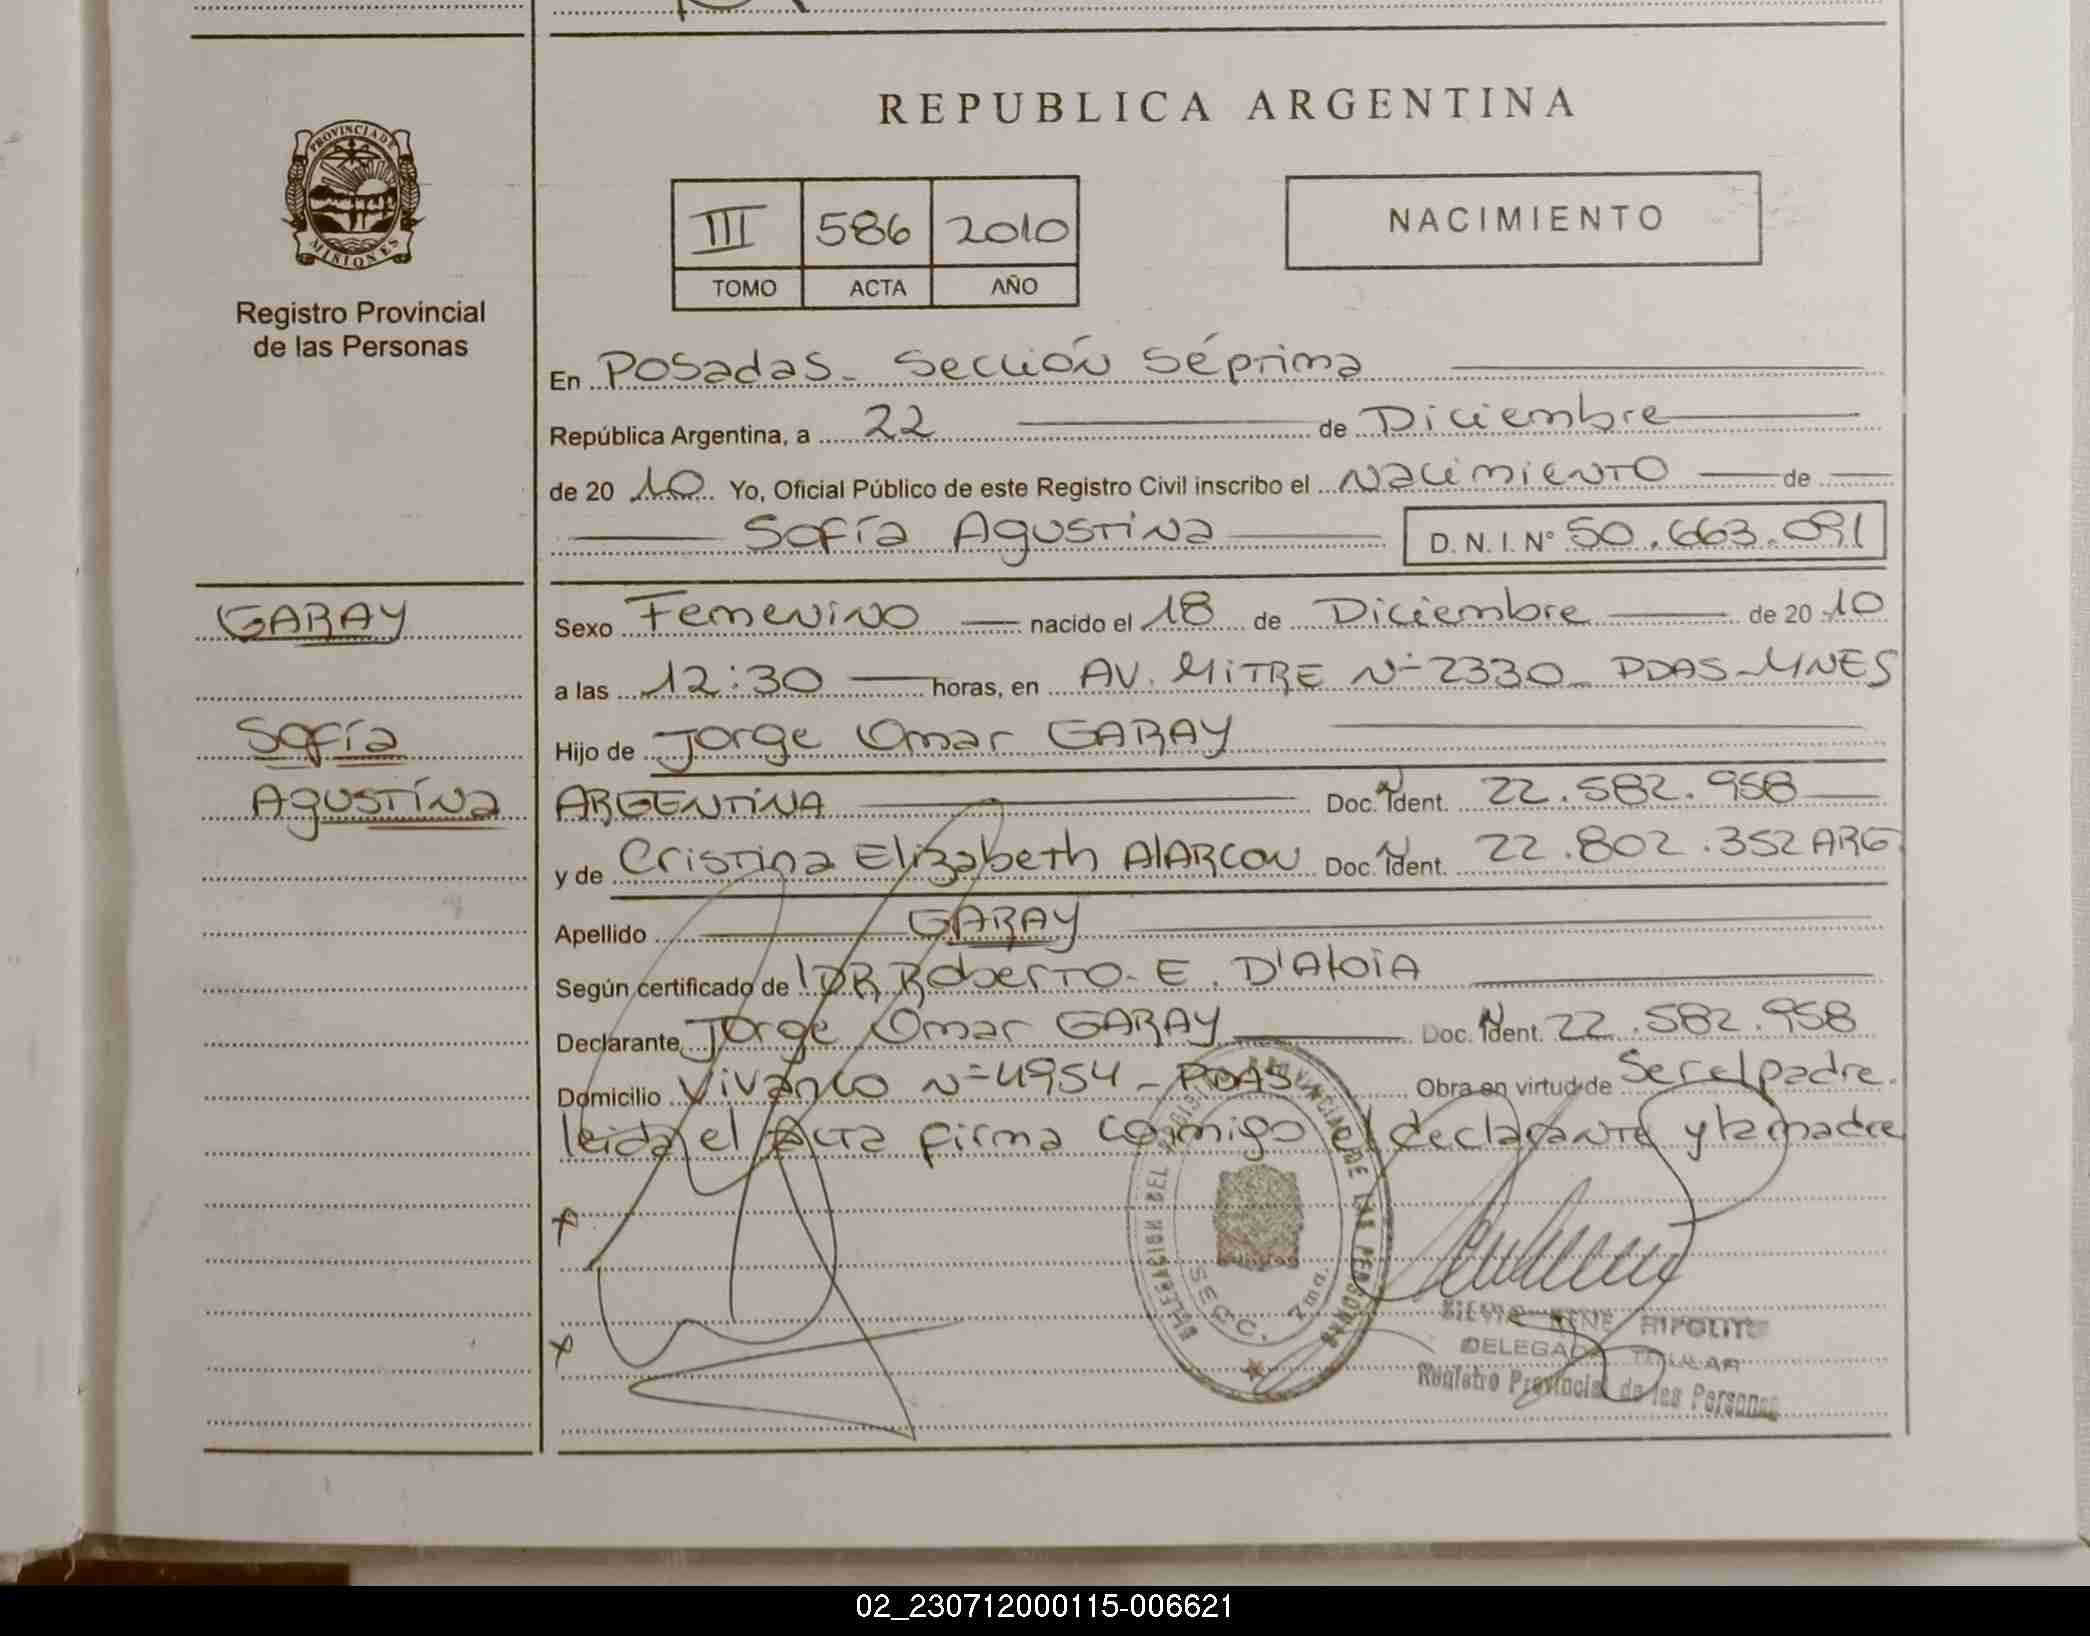 PROVINCIA DE
MISIONES
Registro Provincial
de las Personas
REPUBLICA ARGENTINA
III 586 2010
TOMO ACTA AÑO
NACIMIENTO
En Posadas - Sección Séptima
República Argentina, a 22 de Diciembre
de 20 10 Yo, Oficial Público de este Registro Civil inscribo el Nacimiento de
Sofía Agustina D.N.I. Nº 50.663.091
GARAY
Sofía
Agustína
Sexo Femenino nacido el 18 de Diciembre de 20 10
a las 12:30 horas, en AV. MITRE Nº 2330 - PDAS - MNES
Hijo de Jorge Omar GARAY
ARGENTINA Doc. Ident. 22.582.958
y de Cristina Elizabeth AlARCON Doc. Ident. 22.802.352 ARG.
Apellido GARAY
Según certificado de DR Roberto E. D'AloiA
Declarante Jorge Omar GARAY Doc. Ident. 22.582.958
Domicilio Vivanco Nº 4954 - PDAS Obra en virtud de Ser el padre.
leida el Acta firma conmigo el declarante y la madre
DELEGACION DEL REGISTRO PROVINCIAL DE LAS PERSONAS
SECC. 7ma.
SILVIA RENE HIPOLITO
DELEGADA TITULAR
Registro Provincial de las Personas
02_230712000115-006621